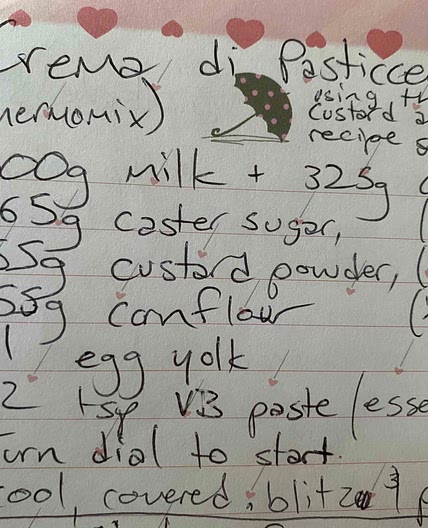 crema di Pasticce
using th
hermomix) custard a
recipe s
00g milk + 325g
65g caster sugar, (
55g custard powder, (
55g cornflour (
1 egg yolk
2 tsp VB paste / esse
urn dial to start.
cool, covered, blitz